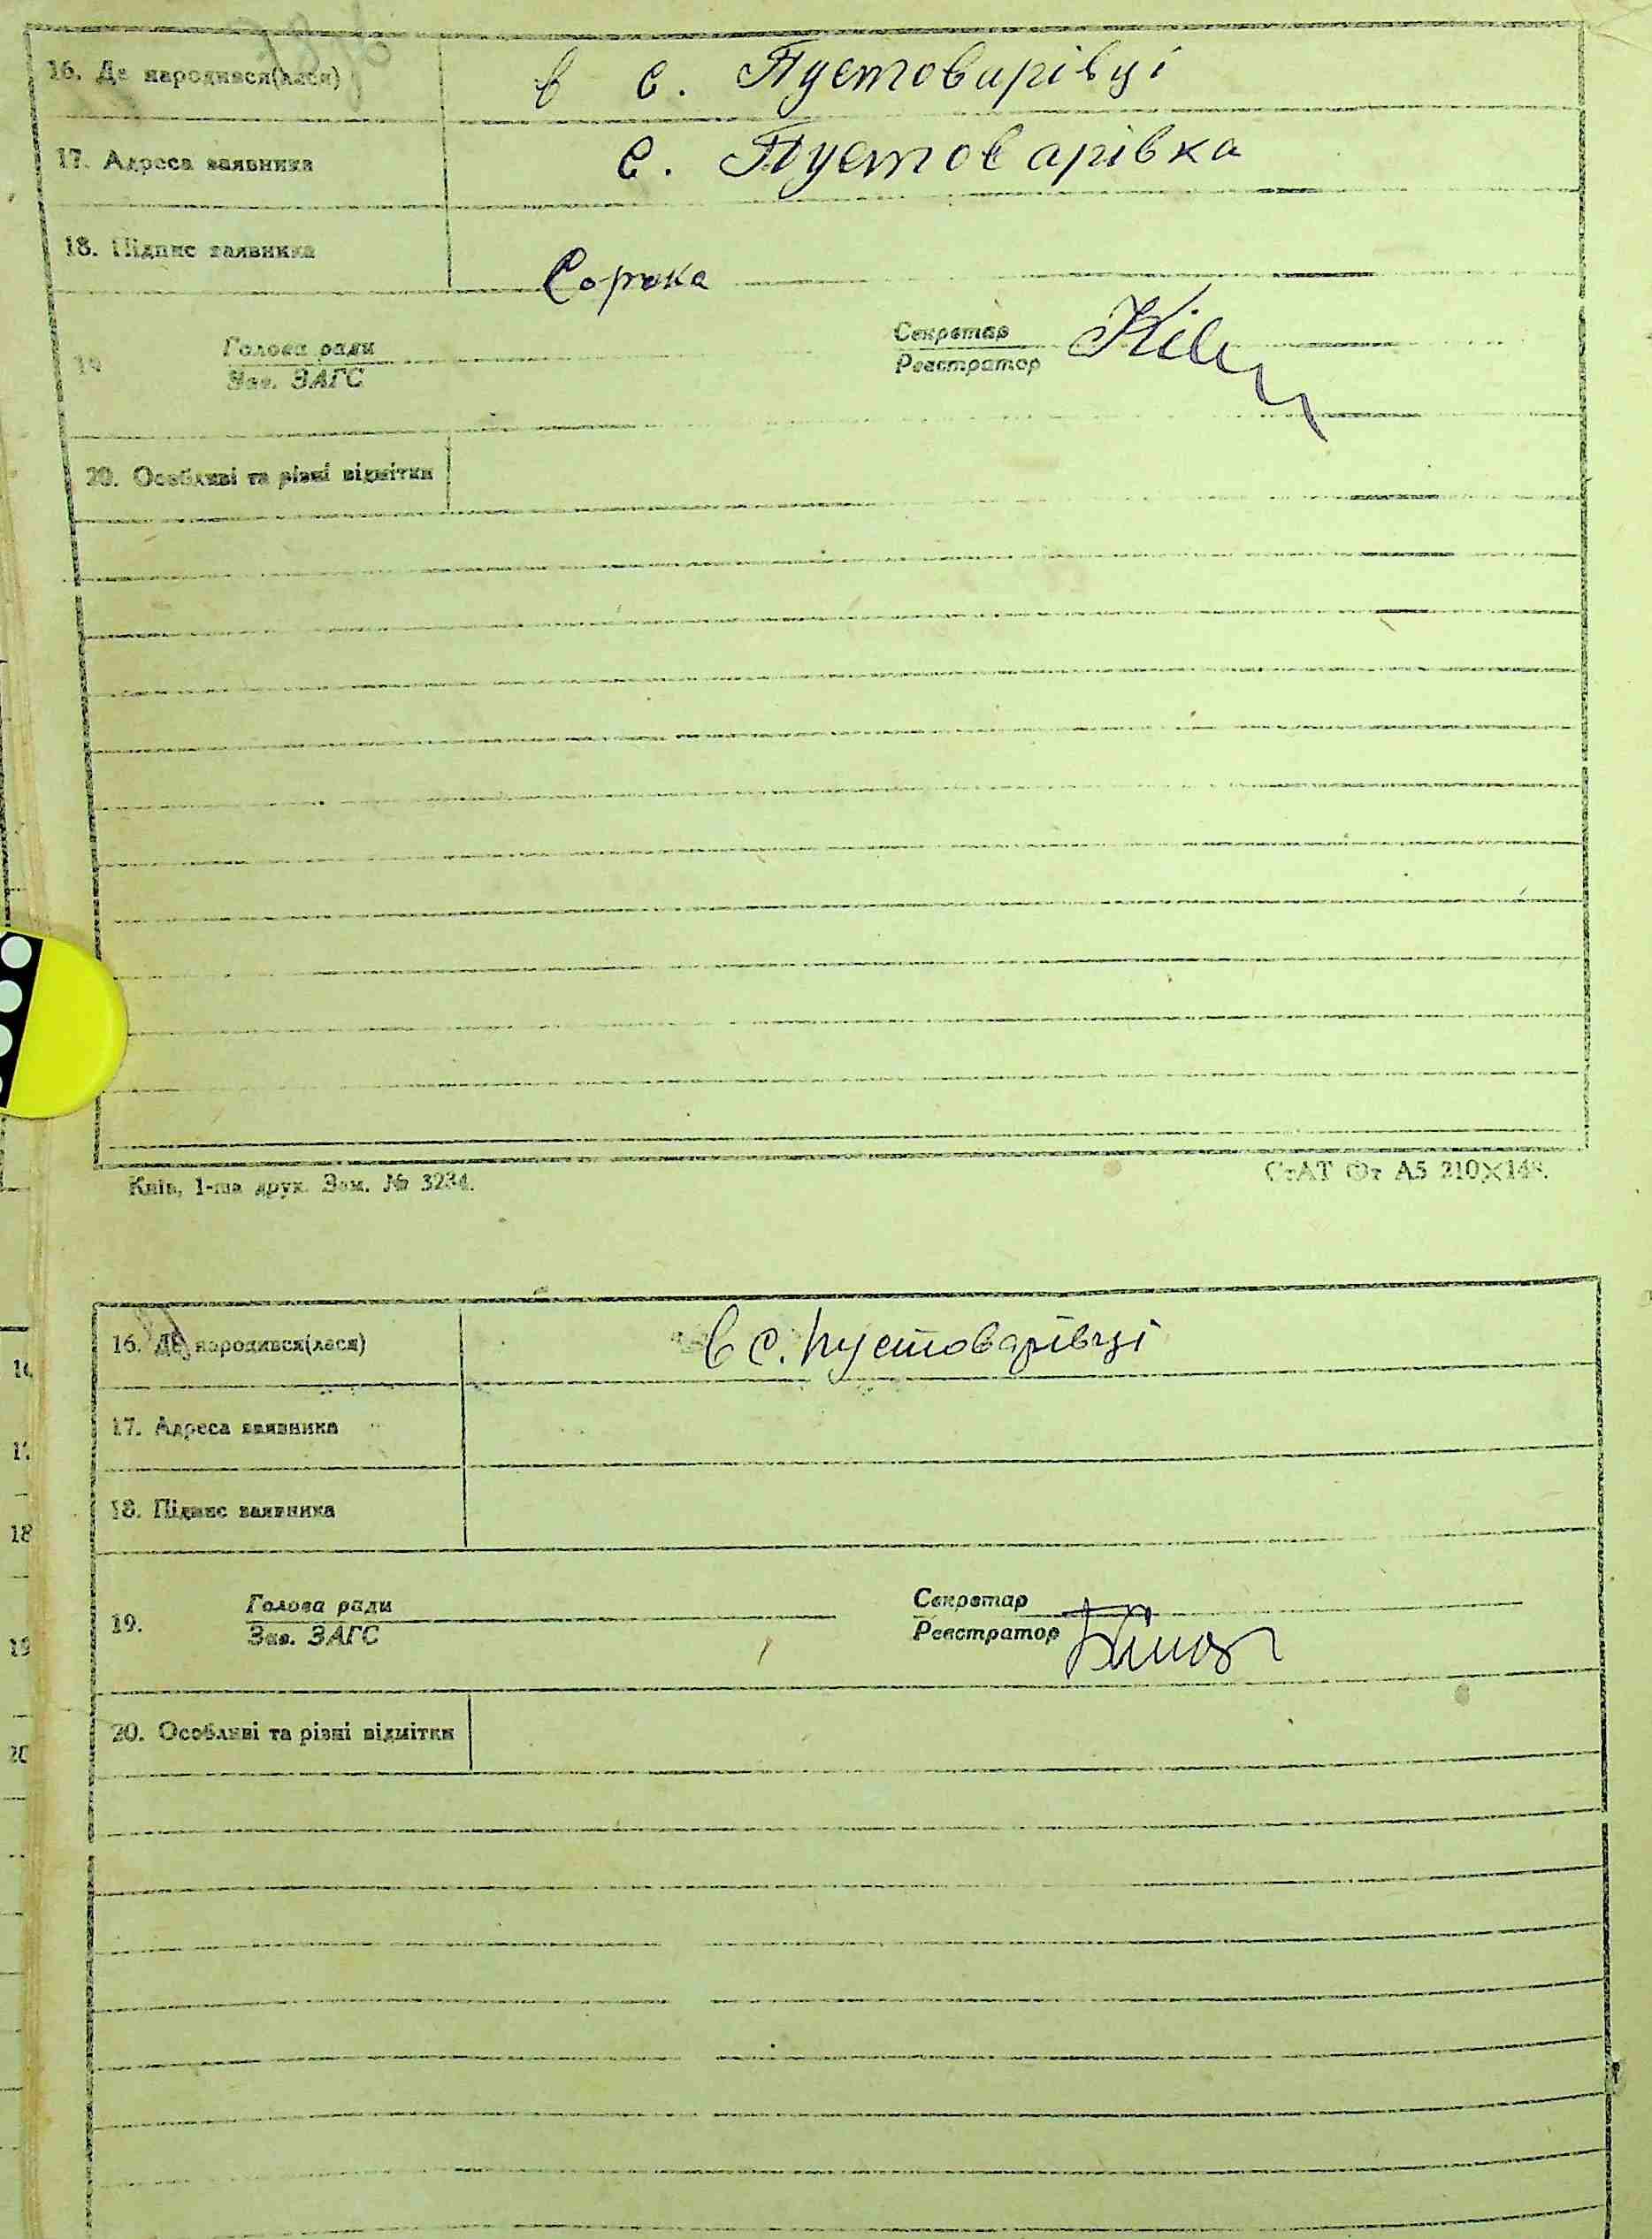 16. Де народився(лася) в с. Пустоварівці
17. Адреса заявника с. Пустоварівка
18. Підпис заявника Сорока
Голова ради Секретар
19 Зав. ЗАГС Реєстратор
20. Особливі та різні відмітки
Київ, 1-ша друк. Зам. № 3234. СтАТ Фт А5 210×148.
16. Де народився(лася) в с. Пустоварівці
17. Адреса заявника
18. Підпис заявника
Голова ради Секретар
19. Зав. ЗАГС Реєстратор
20. Особливі та різні відмітки